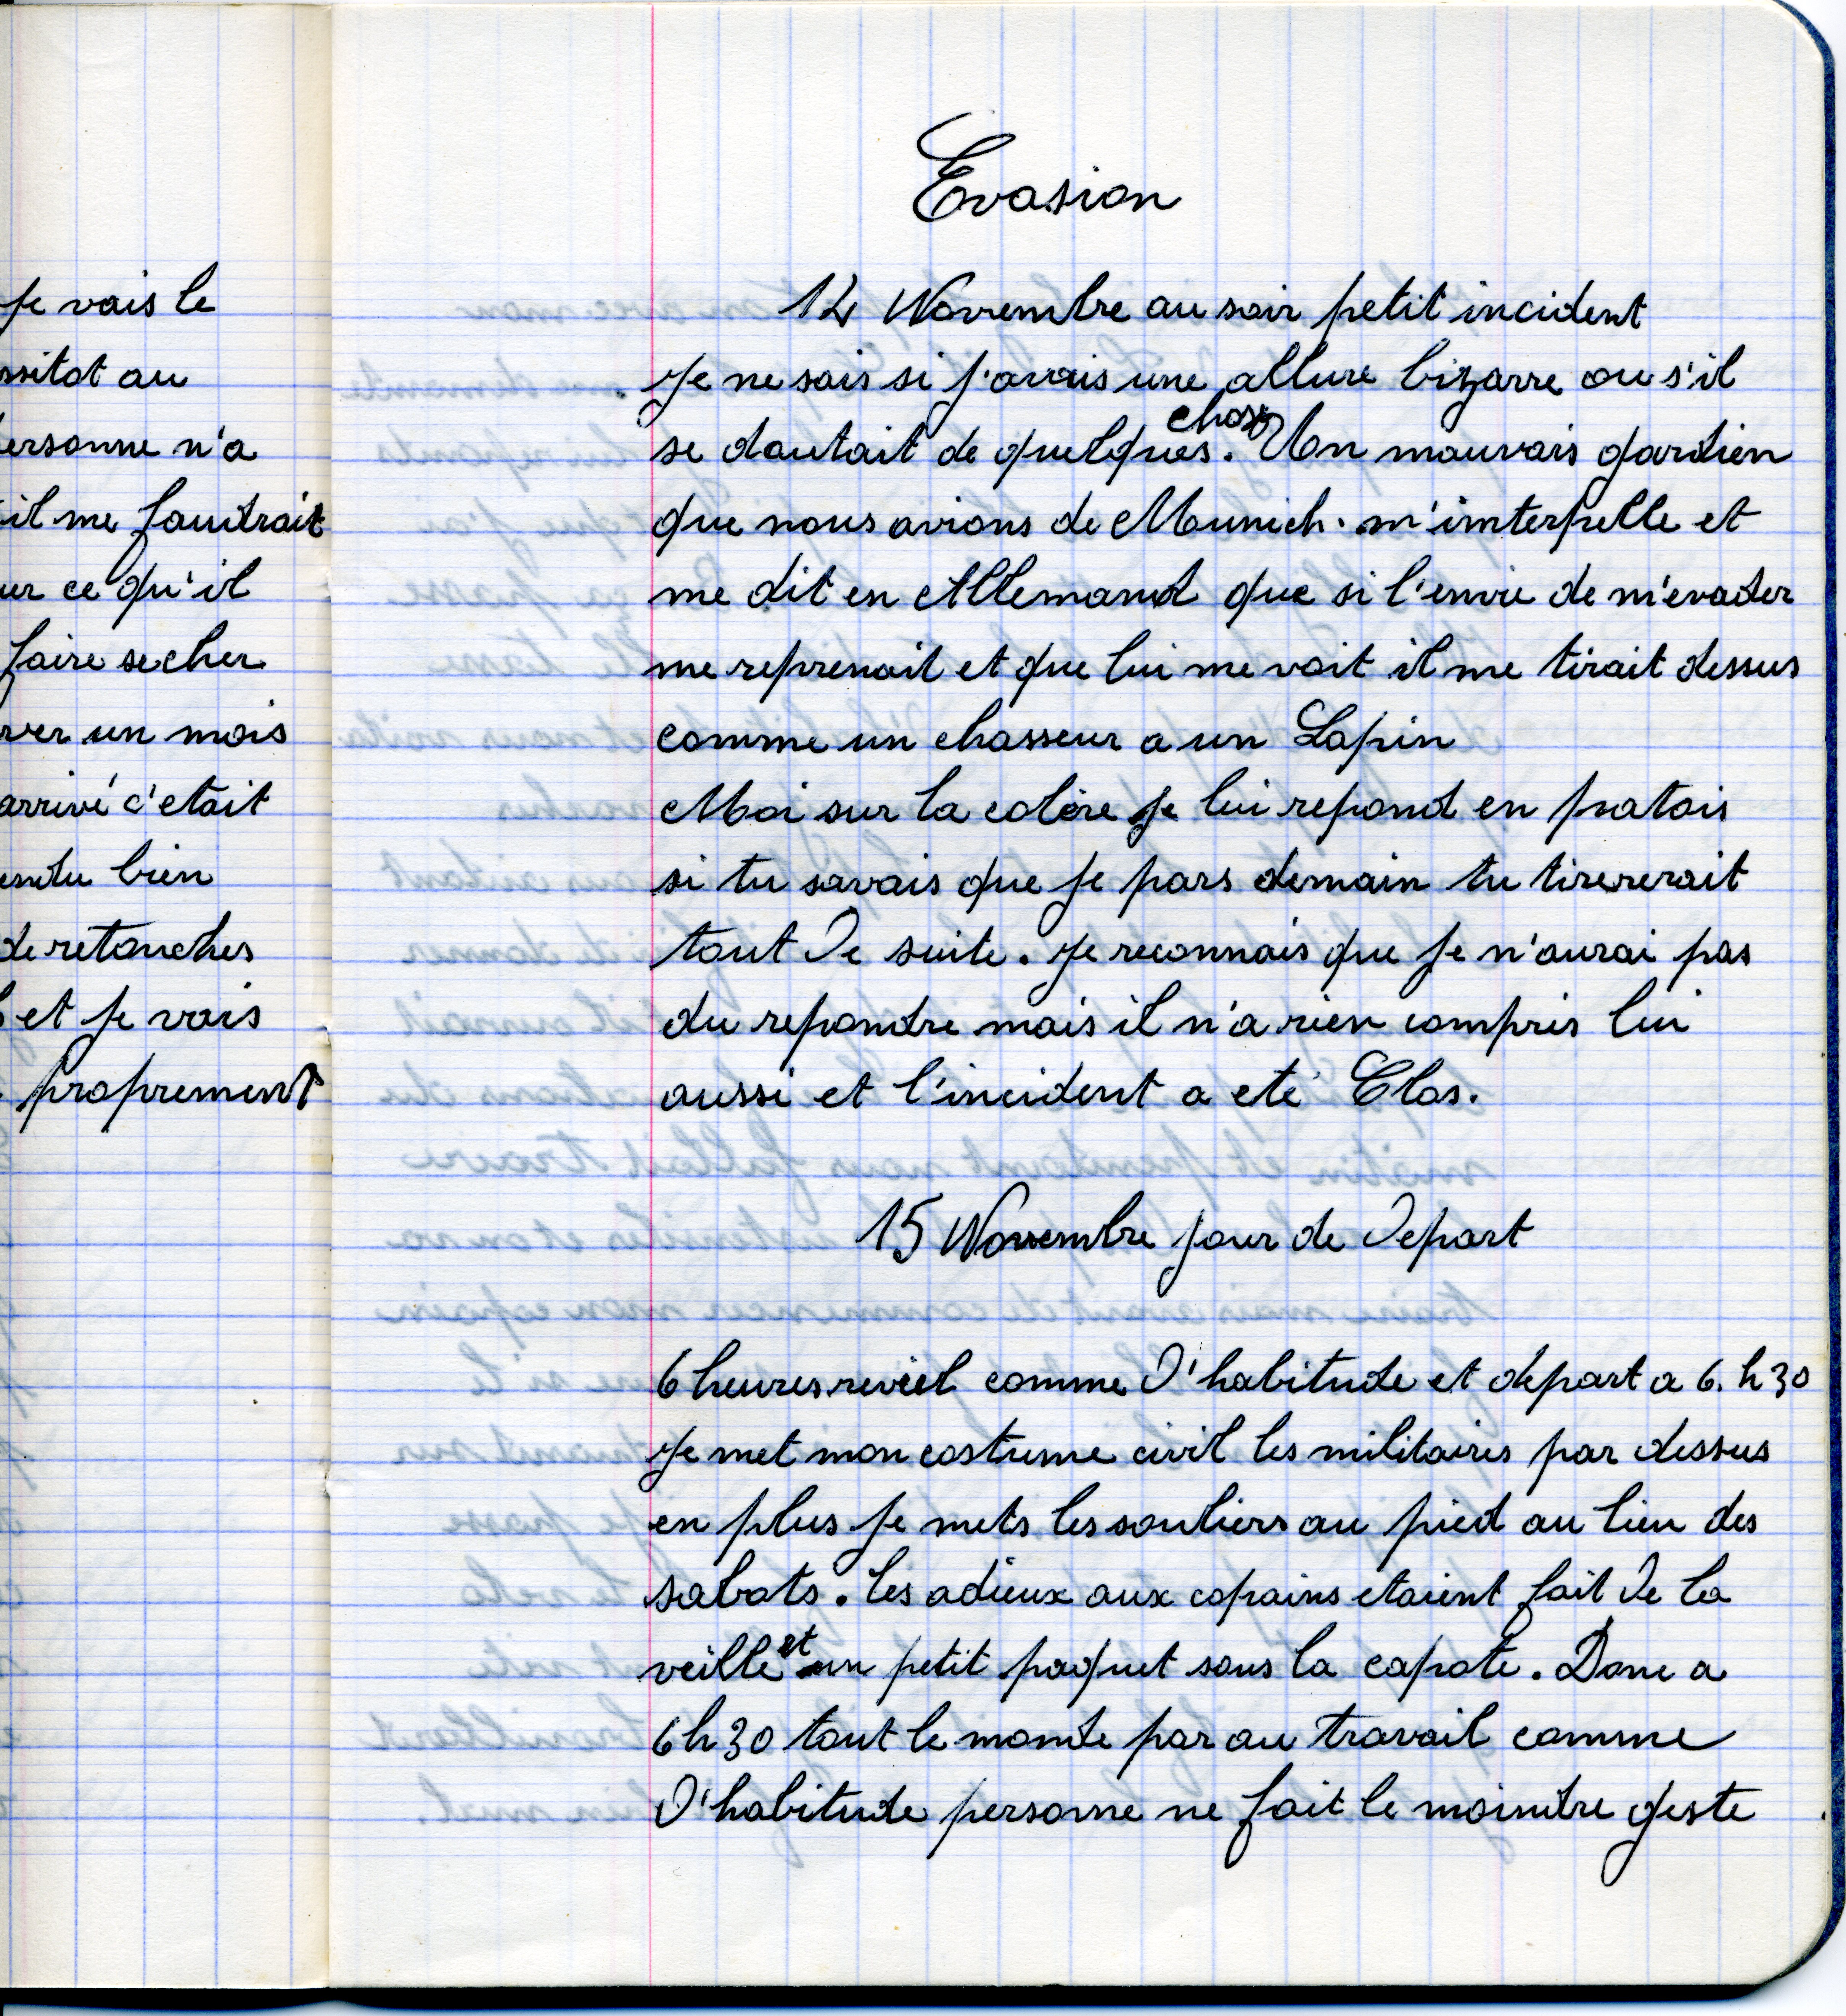 Je vais le
ssitot au
ersonne n'a
il me faudrait
ur ce qu'il
faire secher
ver un mois
arrivé c'etait
endu bien
de retouches
et je vais
proprement
Evasion
14 Novembre au soir petit incident
Je ne sais si j'avais une allure bizarre ou s'il
se doutait de quelques chose. Un mauvais gardien
que nous avions de Munich. m'interpelle et
me dit en Allemand que si l'envie de m'evader
me reprenait et que lui me voit il me tirait dessus
comme un chasseur a un Lapin
Moi sur la colère je lui repond en patois
si tu savais que je pars demain tu tirererait
tout de suite. Je reconnais que je n'aurai pas
du repondre mais il n'a rien compris lui
aussi et l'incident a eté Clos.
15 Novembre jour de Depart
6 heures reveil comme d'habitude et depart a 6. h 30
Je met mon costume civil les militaires par dessus
en plus je mets les souliers au pied au lieu des
sabots. les adieux aux copains etaient fait de la
veille et un petit paquet sous la capote. Donc a
6h30 tout le monde par au travail comme
d'habitude personne ne fait le moindre geste